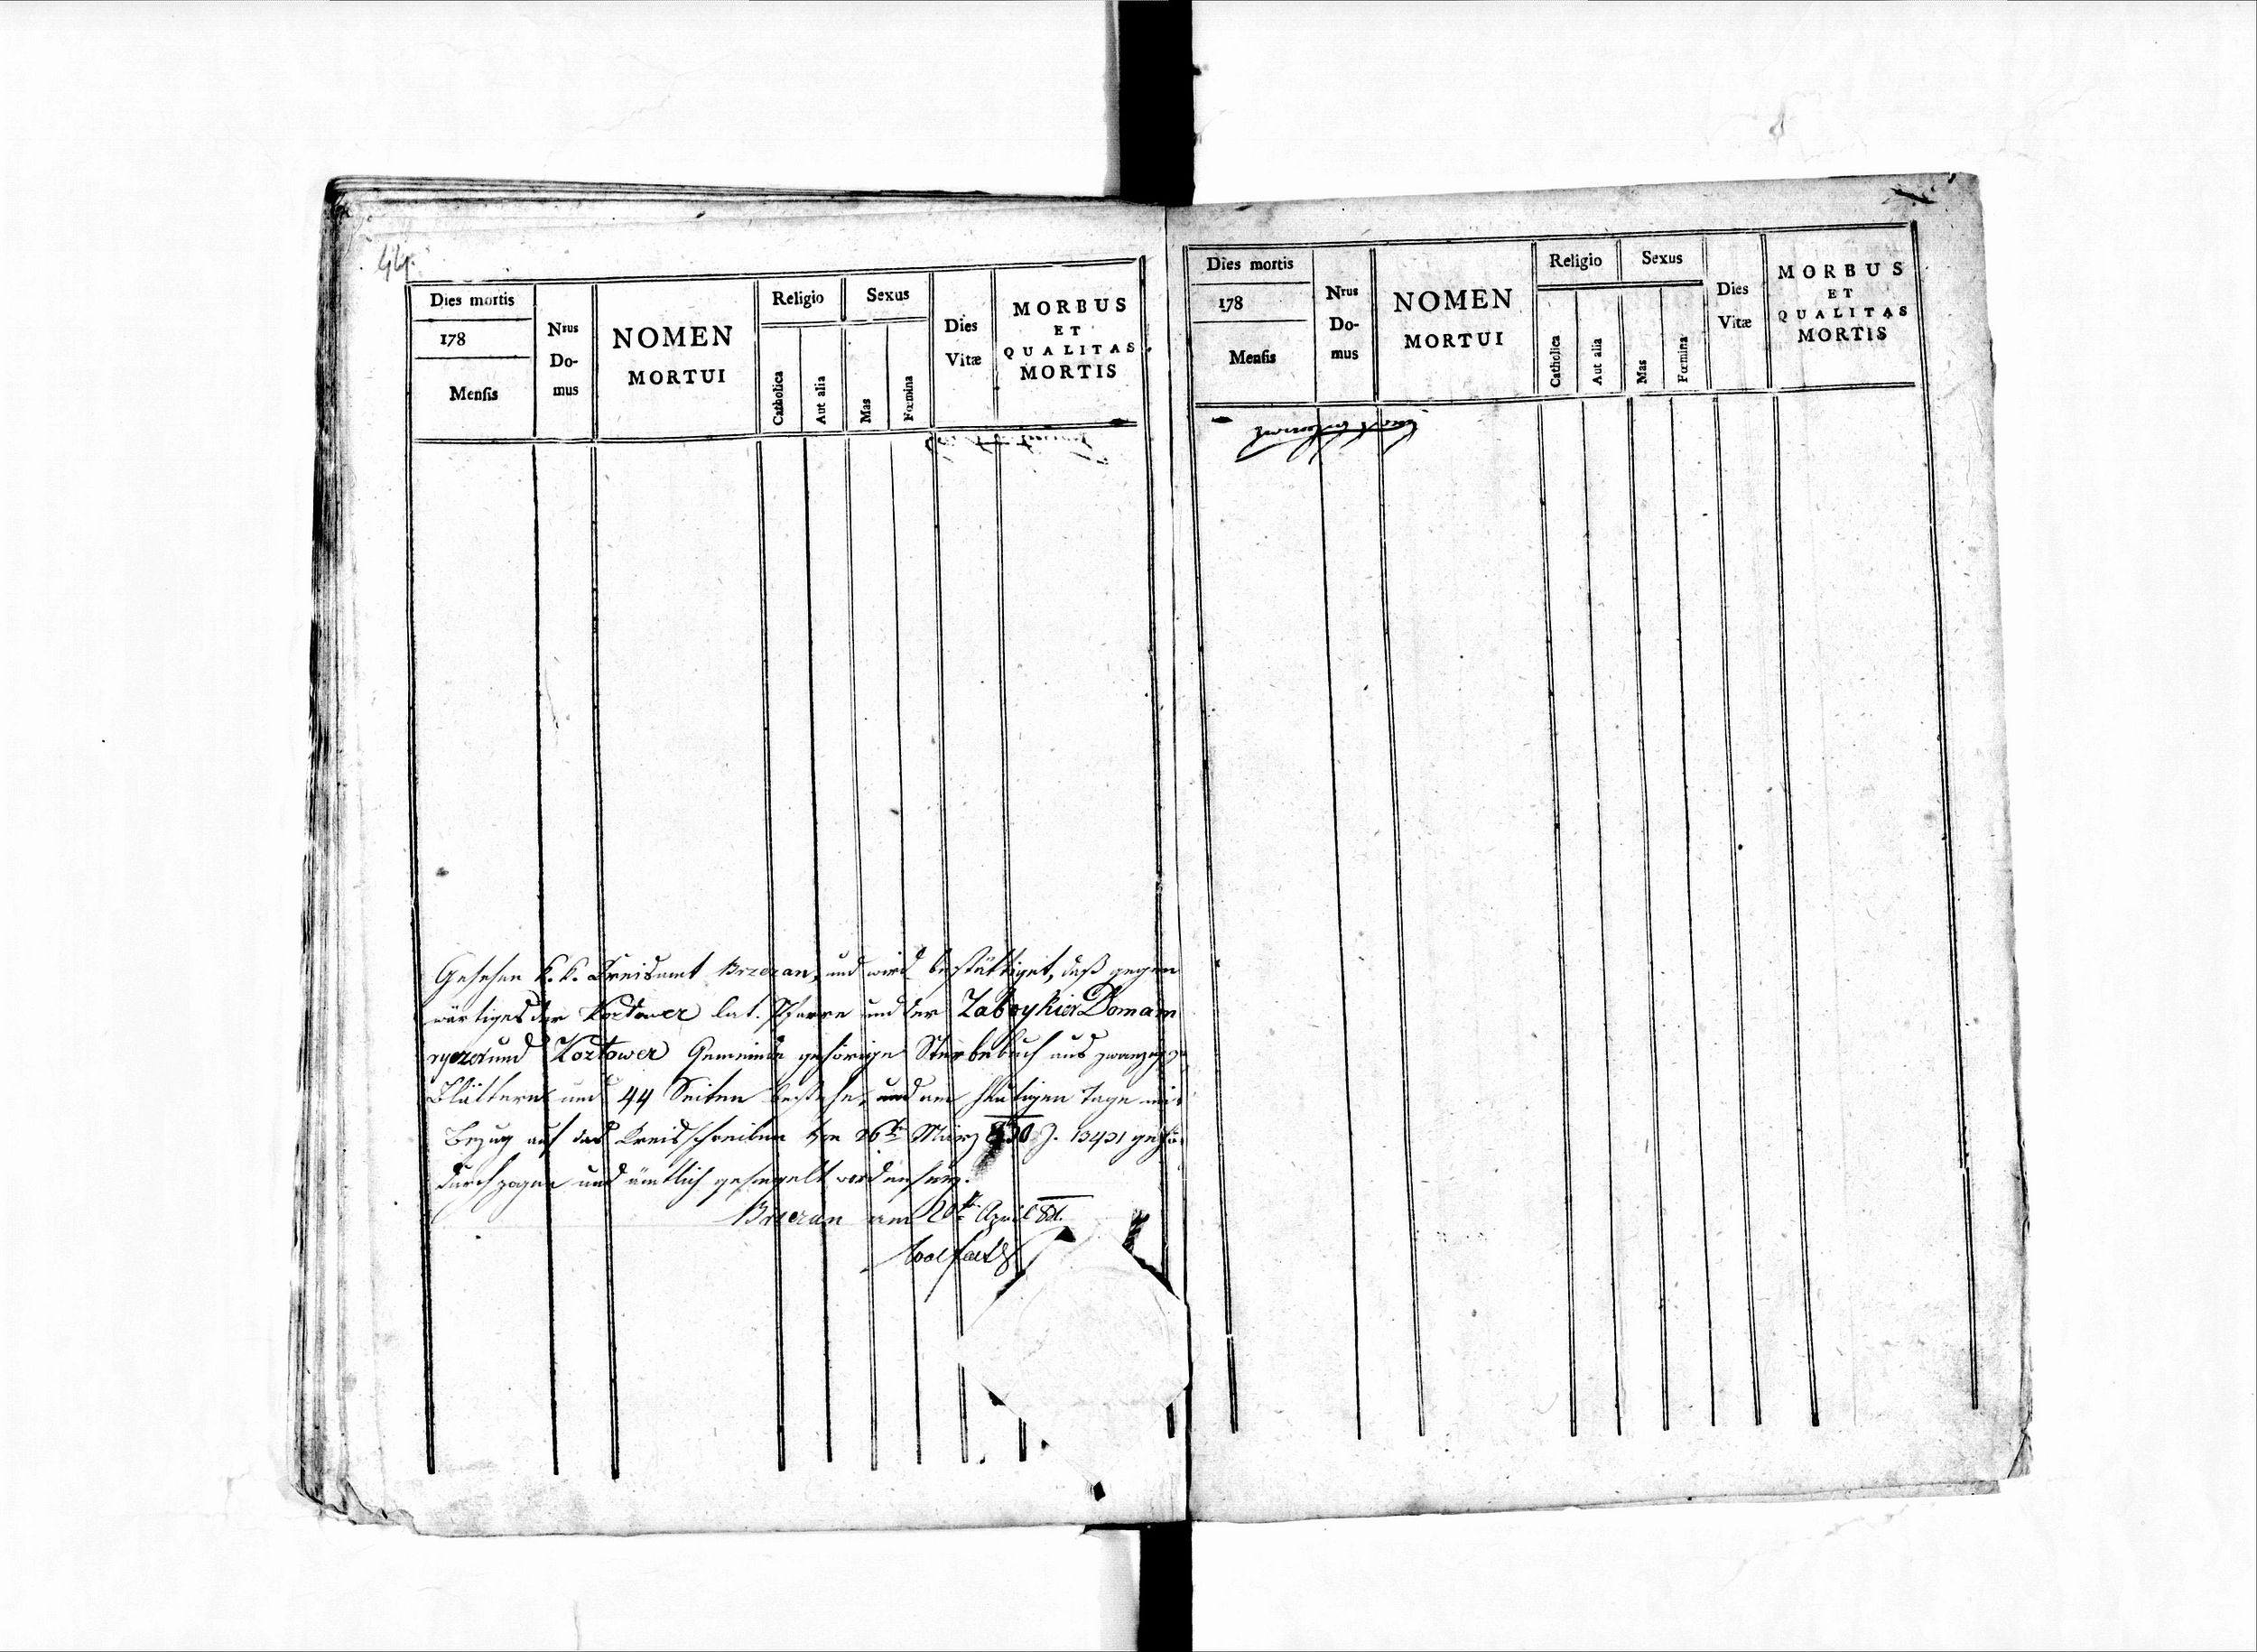 44.
Dies mortis
178
Mensis
Nrus
Do-
mus
NOMEN
MORTUI
Religio
Catholica
Aut alia
Sexus
Mas
Fœmina
Dies
Vitæ
MORBUS
ET
QUALITAS
MORTIS
Gesehen k.k. Kreisamt Brzezan, und wird bestättiget, daß gegen
wärtiges der Kozłower lat. Pfarre und der Zaboykier Domam
rycer und Kozłower Gemeinde gehörige Sterbebuch aus zwanzig
Blättern und 44 Seiten bestehe, und am heutigen Tage mit
Bezug auf das Kreisschreiben vom 26ten März 830 Z. 13431
durchzogen und ämtlich gesiegelt worden sey.
Brzezan am 20ten April 831.
Dies mortis
178
Mensis
Nrus
Do-
mus
NOMEN
MORTUI
Religio
Catholica
Aut alia
Sexus
Mas
Fœmina
Dies
Vitæ
MORBUS
ET
QUALITAS
MORTIS